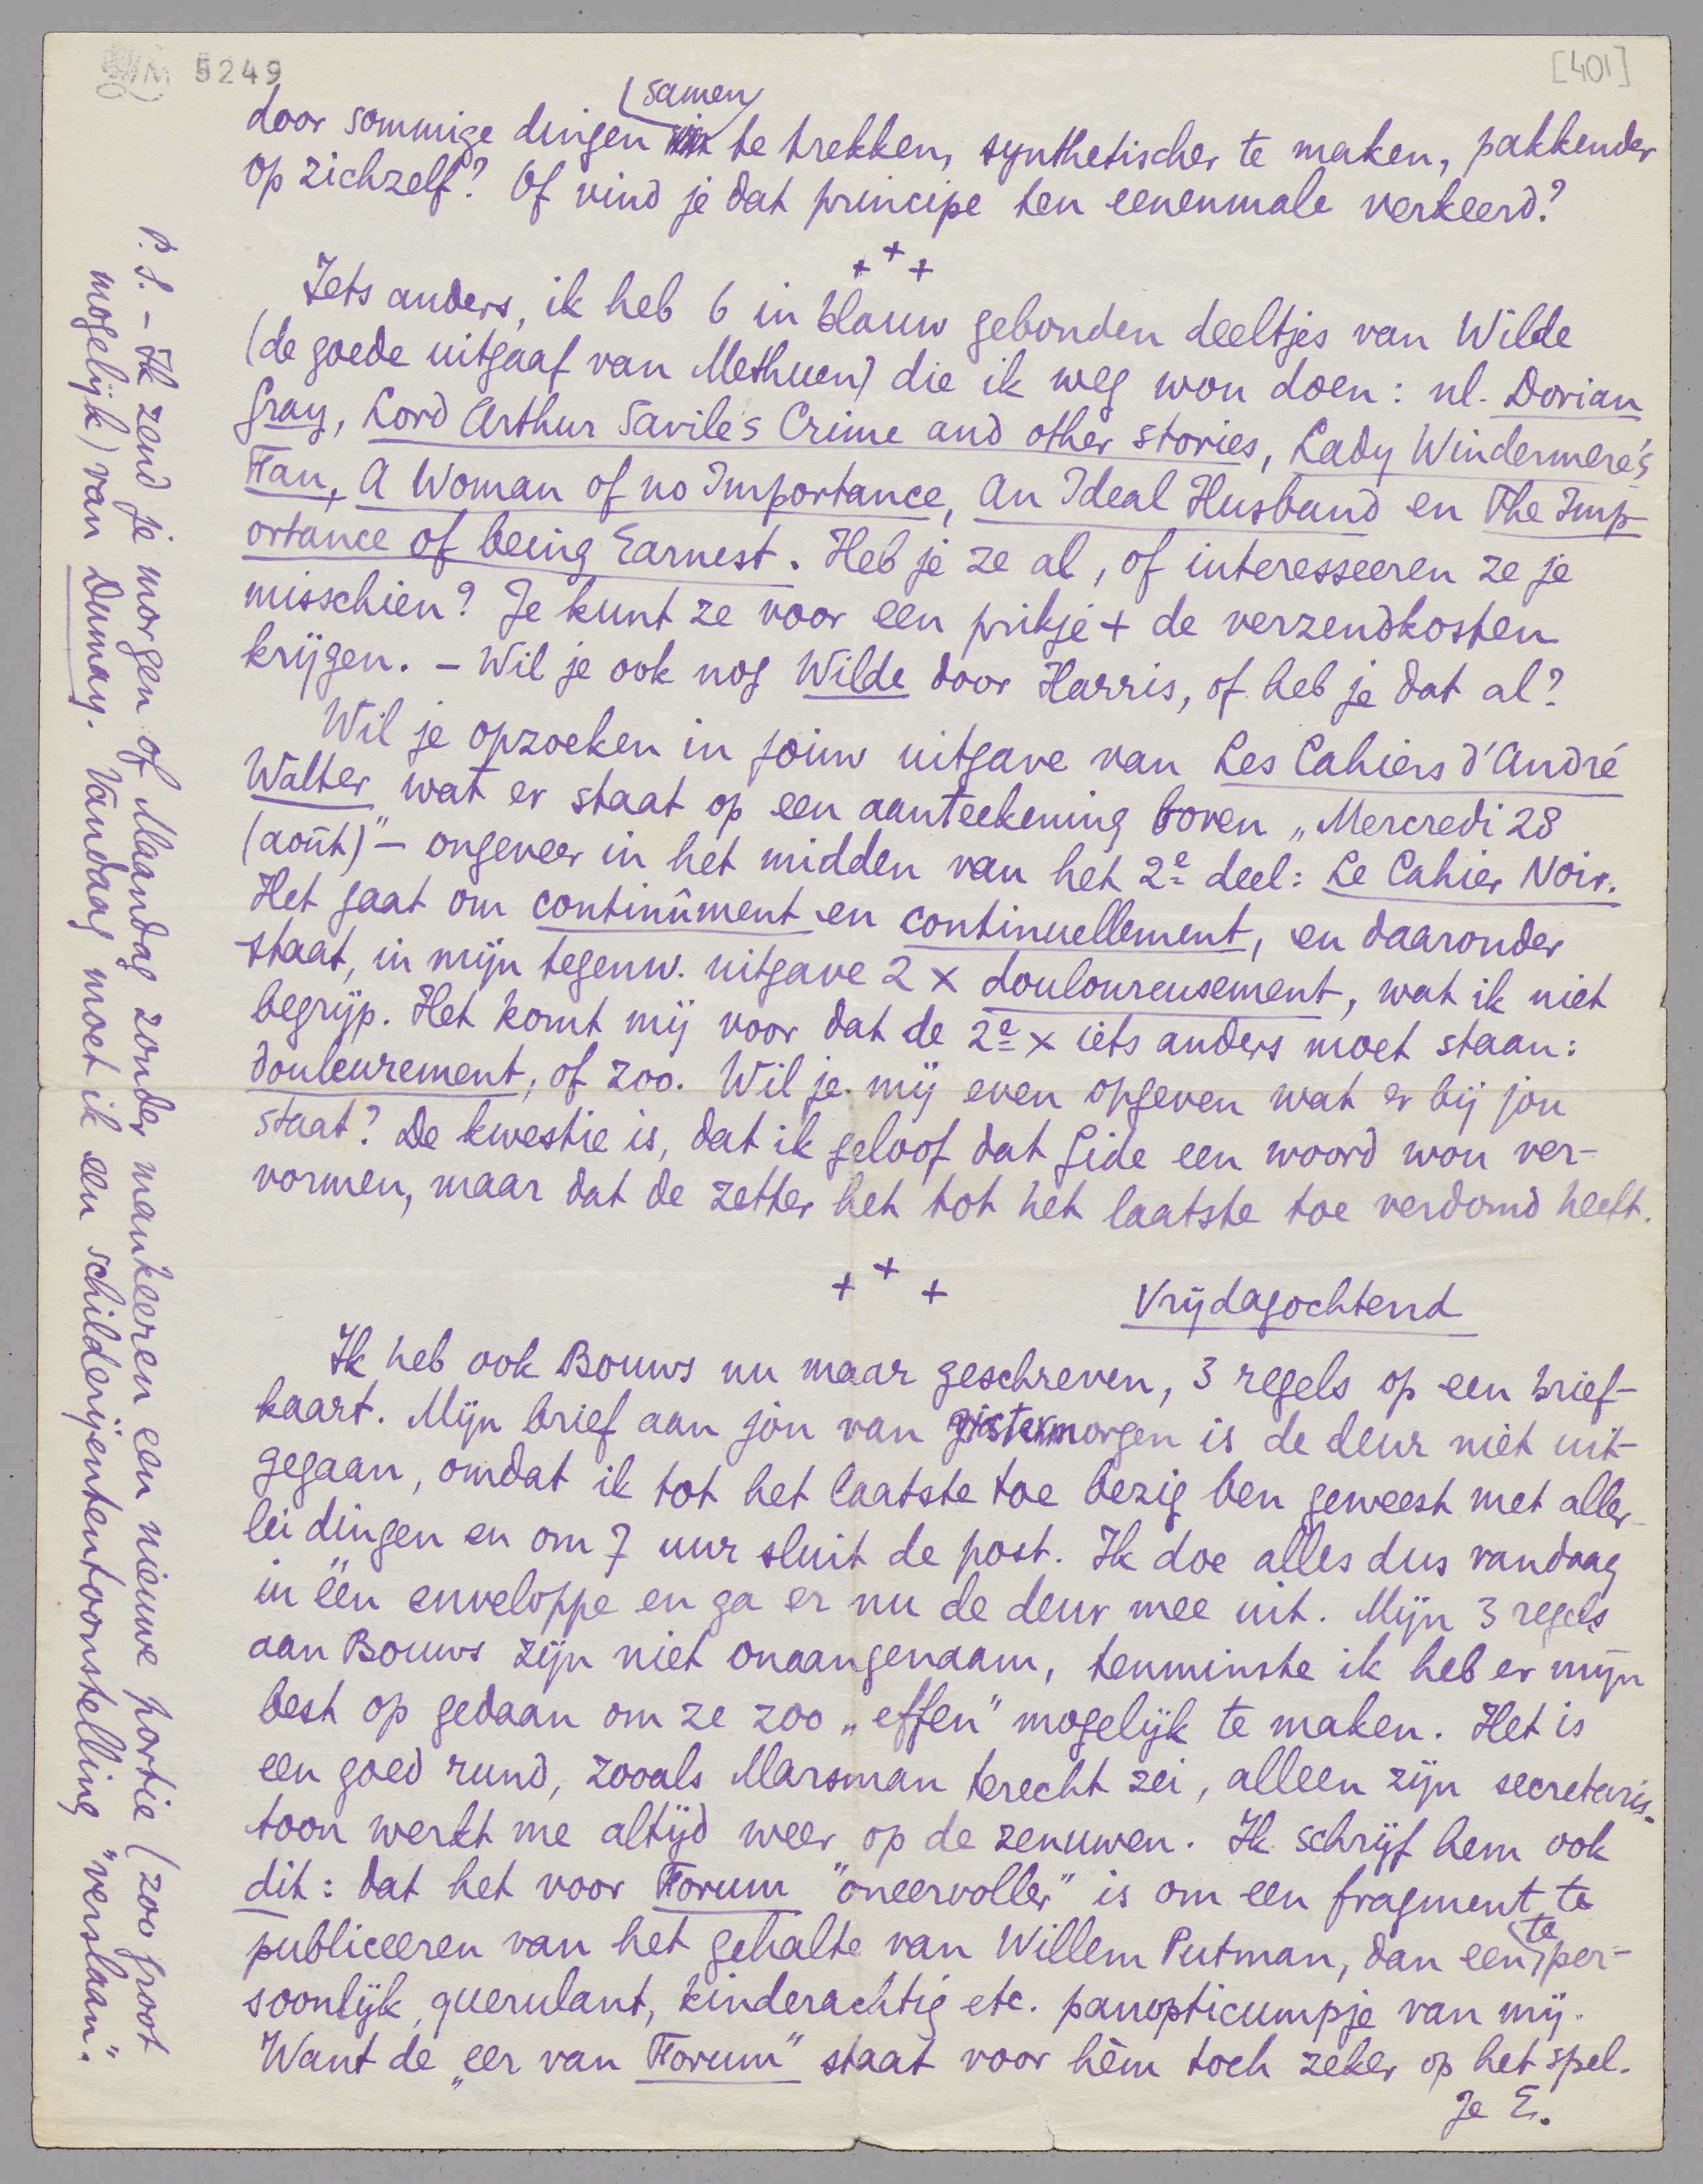 5249
[401]
door sommige dingen samen te trekken, synthetischer te maken, pakkender
op zichzelf? Of vind je dat principe ten eenenmale verkeerd?
+ + +
Iets anders, ik heb 6 in blauw gebonden deeltjes van Wilde
(de goede uitgaaf van Methuen) die ik weg wou doen: nl. Dorian
Gray, Lord Arthur Savile's Crime and other stories, Lady Windermere's
Fan, A Woman of no Importance, An Ideal Husband en The Imp-
ortance of being Earnest. Heb je ze al, of interesseeren ze je
misschien? Je kunt ze voor een prikje + de verzendkosten
krijgen. – Wil je ook nog Wilde door Harris, of heb je dat al?
Wil je opzoeken in jouw uitgave van Les Cahiers d'André
Walter wat er staat op een aanteekening boven „Mercredi 28
(août)" – ongeveer in het midden van het 2e deel: Le Cahier Noir.
Het gaat om continûment en continuellement, en daaronder
staat, in mijn tegenw. uitgave 2 x douloureusement, wat ik niet
begrijp. Het komt mij voor dat de 2e x iets anders moet staan:
douleurement, of zoo. Wil je mij even opgeven wat er bij jou
staat? De kwestie is, dat ik geloof dat Gide een woord wou ver-
vormen, maar dat de zetter het tot het laatste toe verdomd heeft.
+ + +
Vrijdagochtend
Ik heb ook Bouws nu maar geschreven, 3 regels op een brief-
kaart. Mijn brief aan jou van gistermorgen is de deur niet uit-
gegaan, omdat ik tot het laatste toe bezig ben geweest met aller-
lei dingen en om 7 uur sluit de post. Ik doe alles dus vandaag
in één enveloppe en ga er nu de deur mee uit. Mijn 3 regels
aan Bouws zijn niet onaangenaam, tenminste ik heb er mijn
best op gedaan om ze zoo „effen" mogelijk te maken. Het is
een goed rund, zooals Marsman terecht zei, alleen zijn secretaris-
toon werkt me altijd weer op de zenuwen. Ik schrijf hem ook
dit: dat het voor Forum "oneervoller" is om een fragment te
publiceeren van het gehalte van Willem Putman, dan een te per-
soonlijk, querulant, kinderachtig etc. panopticumpje van mij.
Want de „eer van Forum" staat voor hèm toch zeker op het spel.
Je E.
P.S. – Ik zend je morgen of Maandag zonder mankeeren een nieuwe portie (zoo groot
mogelijk) van Dumay. Vandaag moet ik een schilderijententoonstelling "verslaan".